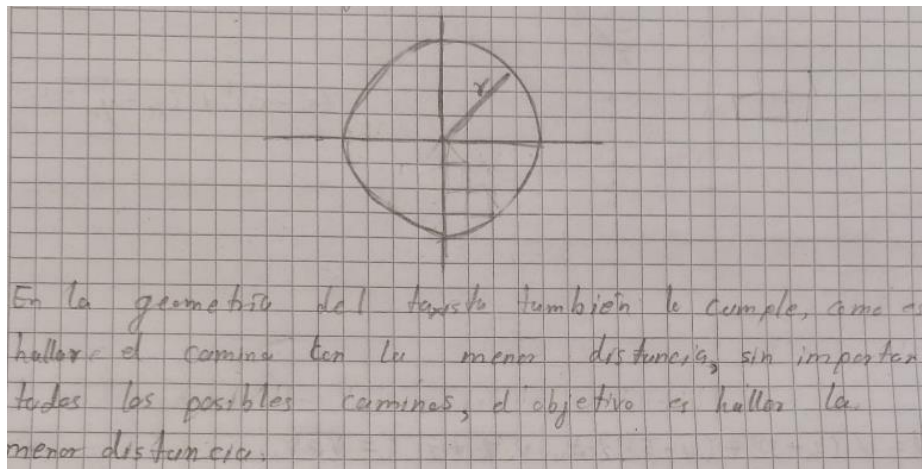 r
En la geometria del taxista tambien lo cumple, como
hallar el camino con la menor distancia, sin importar
todos los posibles caminos, el objetivo es hallar la
menor distancia.